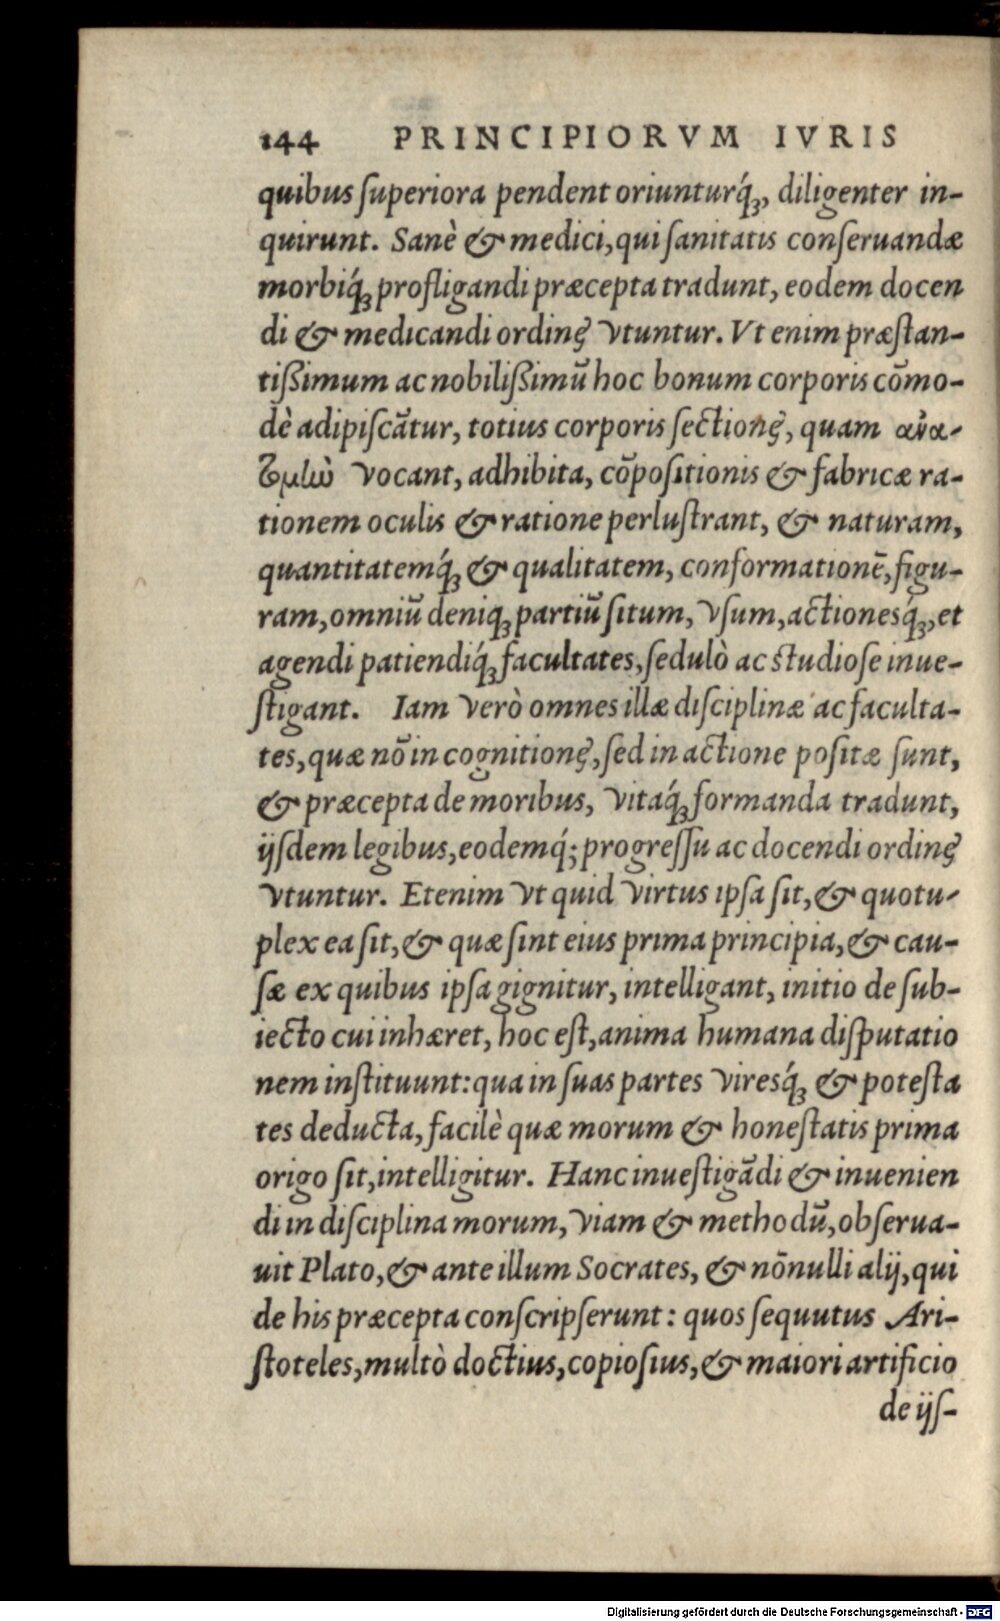 144 PRINCIPIORVM IVRIS
quibus ſuperiora pendent oriunturq́ꝫ, diligenter in-
quirunt. Sanè & medici, qui ſanitatis conſeruandæ
morbiq́ꝫ profligandi præcepta tradunt, eodem docen
di & medicandi ordinę vtuntur. Vt enim præſtan-
tißimum ac nobilißimū hoc bonum corporis cōmo-
dè adipiſcātur, totius corporis ſectionę, quam ανα-
τομὼ vocant, adhibita, cōpoſitionis & fabricæ ra-
tionem oculis & ratione perluſtrant, & naturam,
quantitatemq́ꝫ & qualitatem, conformationē, figu-
ram, omniū deniqꝫ partiū ſitum, vſum, actionesq́ꝫ, et
agendi patiendiq́ꝫ facultates, ſedulò ac ſtudioſe inue-
ſtigant. Iam verò omnes illæ diſciplinæ ac faculta-
tes, quæ nō in cognitionę, ſed in actione poſitæ ſunt,
& præcepta de moribus, vitaq́ꝫ formanda tradunt,
ijſdem legibus, eodemq́; progreſſu ac docendi ordinę
vtuntur. Etenim vt quid virtus ipſa ſit, & quotu-
plex ea ſit, & quæ ſint eius prima principia, & cau-
ſæ ex quibus ipſa gignitur, intelligant, initio de ſub-
iecto cui inhæret, hoc eſt, anima humana diſputatio
nem inſtituunt: qua in ſuas partes viresq́ꝫ & poteſta
tes deducta, facilè quæ morum & honeſtatis prima
origo ſit, intelligitur. Hanc inueſtigādi & inuenien
di in diſciplina morum, viam & methodū, obſerua-
uit Plato, & ante illum Socrates, & nōnulli alij, qui
de his præcepta conſcripſerunt: quos ſequutus Ari-
ſtoteles, multò doctius, copioſius, & maiori artificio
de ijſ-
Digitalisierung gefördert durch die Deutsche Forschungsgemeinschaft - DFG